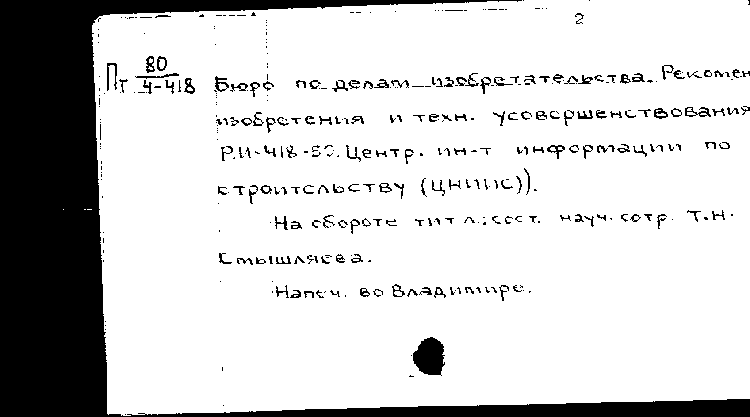 2
Пт 80/4-418 Бюро по делам изобретательства. Рекомен
изобретения и техн. усовершенствования
Р.И-418-80. Центр. ин-т информации по
строительству (ЦНИПС)).
На обороте тит л.: сост. науч. сотр. Т.Н.
Смышляева.
Напеч. во Владимире.